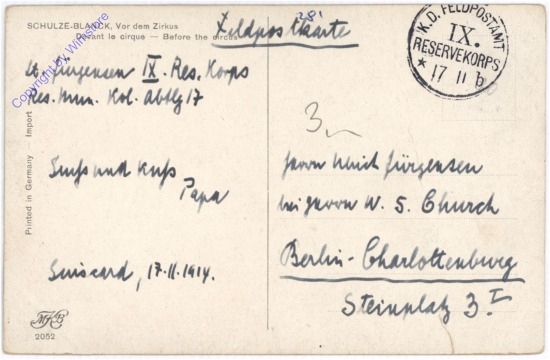 SCHULZE-BLANCK, Vor dem Zirkus
Devant le cirque — Before the circus
Feldpostkarte
281
K. D. FELDPOSTAMT
IX.
RESERVEKORPS
* 17 11 b
Copyright by Wimstore
Lt. Jürgensen IX. Res. Korps
Res. Mun. Kol. Abtlg 17
Gruß und Kuß
Papa
Guiscard, 17.11.1914.
Printed in Germany — Import
MKB
2052
3,—
Herrn Ulrich Jürgensen
bei Herrn W. S. Church
Berlin-Charlottenburg
Steinplatz 3 I